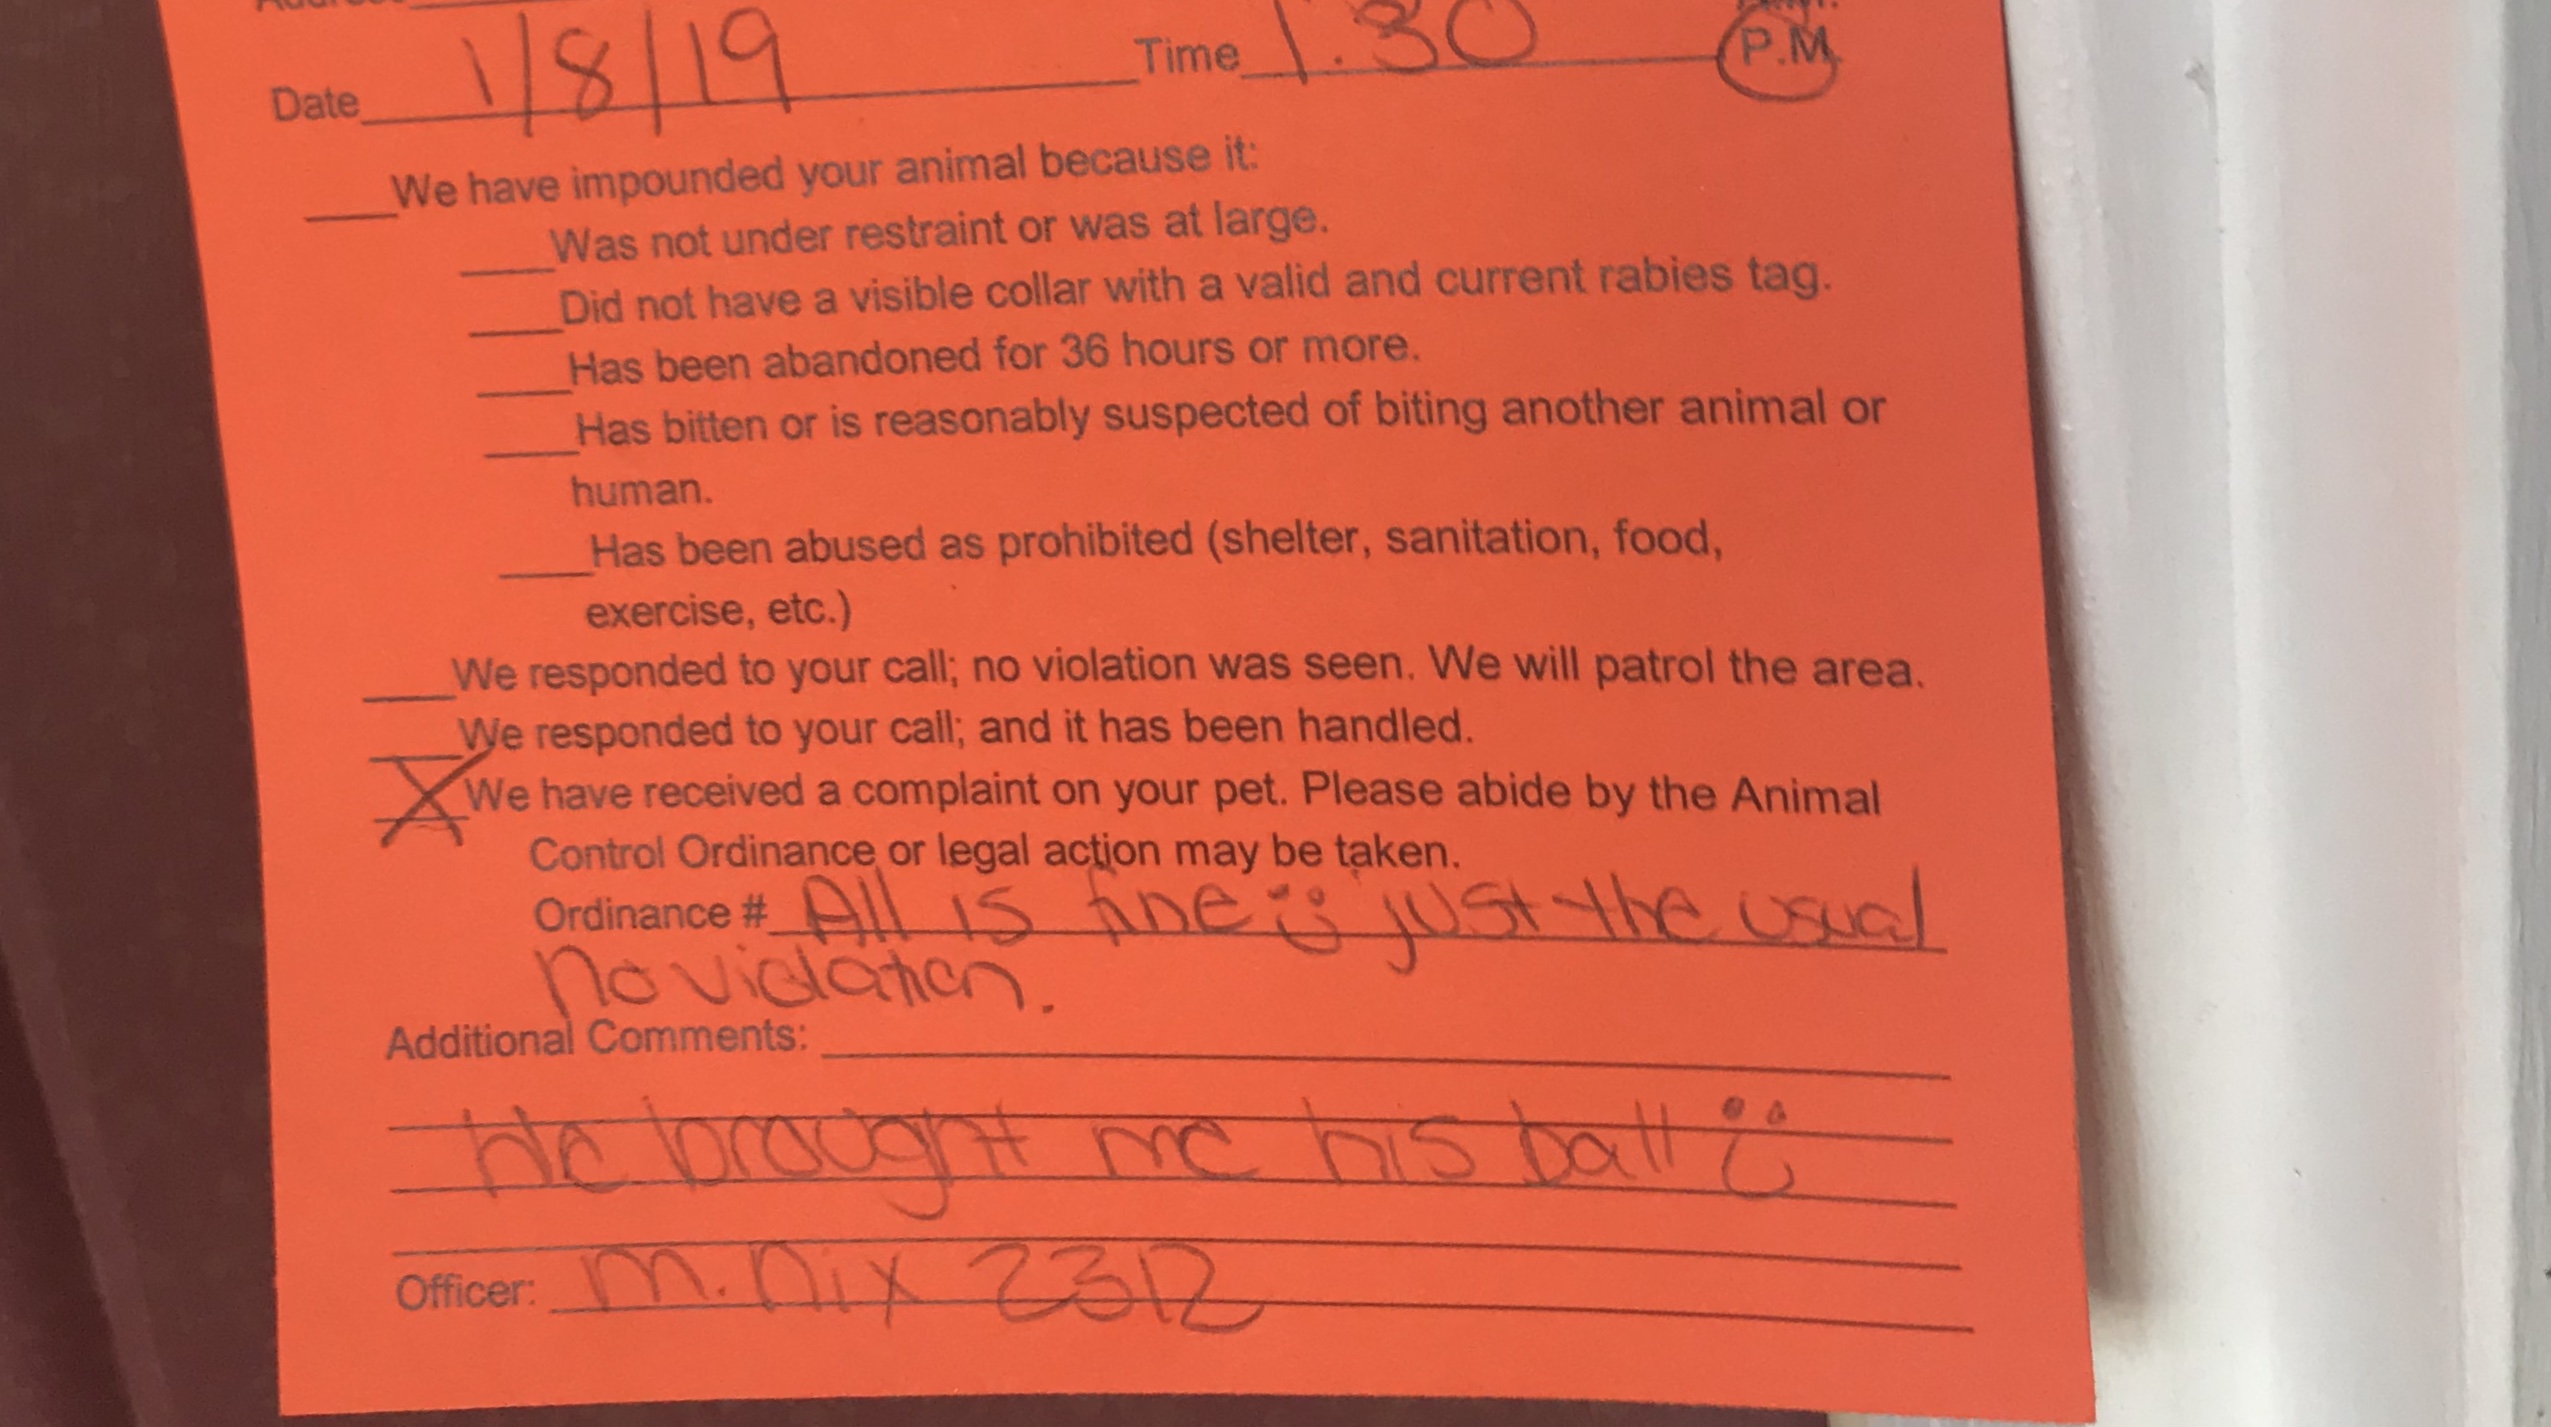 Date 1/8/19 Time 1:30 P.M.
___We have impounded your animal because it:
___Was not under restraint or was at large.
___Did not have a visible collar with a valid and current rabies tag.
___Has been abandoned for 36 hours or more.
___Has bitten or is reasonably suspected of biting another animal or
human.
___Has been abused as prohibited (shelter, sanitation, food,
exercise, etc.)
___We responded to your call; no violation was seen. We will patrol the area.
___We responded to your call; and it has been handled.
X We have received a complaint on your pet. Please abide by the Animal
Control Ordinance or legal action may be taken.
Ordinance # All is fine :) just the usual
no violation.
Additional Comments:
He brought me his ball :)
Officer: M. Nix 2312